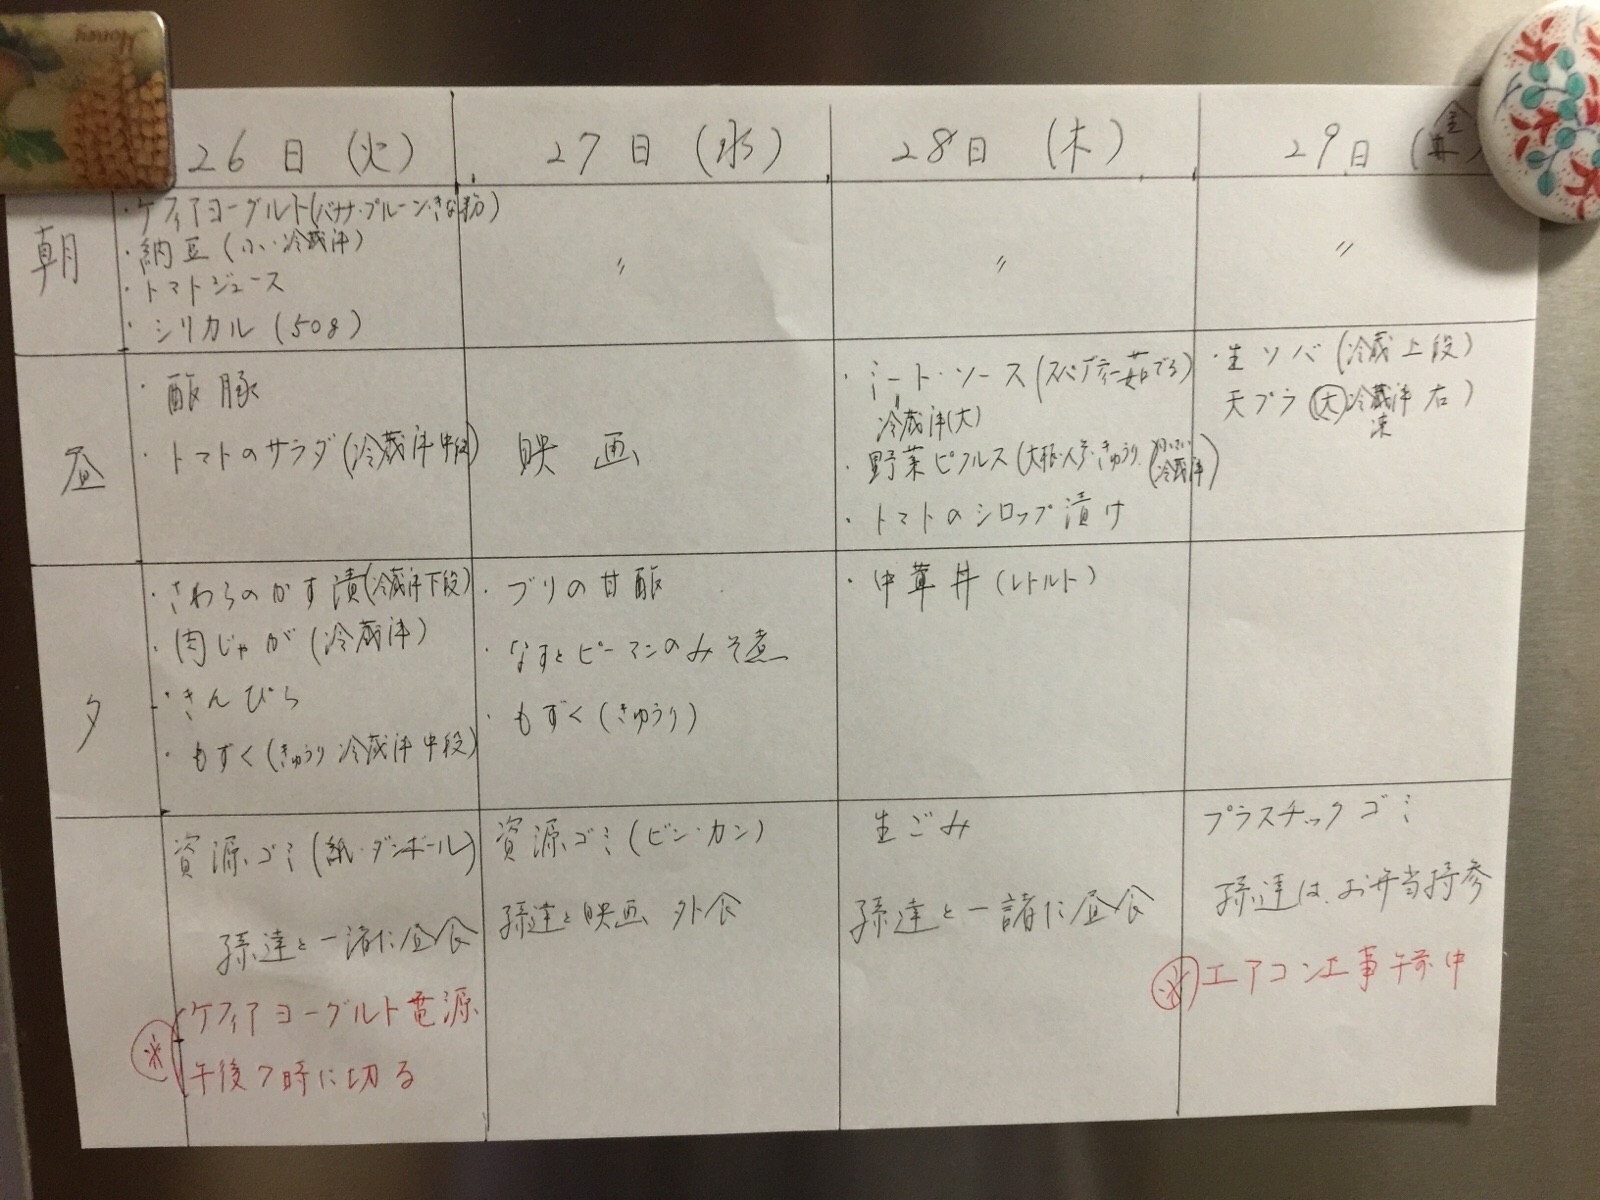 Honey
26日（火）
27日（水）
28日（木）
29日（金）
朝
・ケフィアヨーグルト(バナナ・プルーン・きな粉)
・納豆（小・冷蔵庫）
・トマトジュース
・シリカル（50g）
〃
〃
〃
昼
・酢豚
・トマトのサラダ（冷蔵庫中段）
映画
・ミート・ソース（スパゲティー茹でる）
冷蔵庫（大）
・野菜ピクルス（大根・人参・きゅうり
冷蔵庫）
・トマトのシロップ漬け
・生ソバ（冷蔵上段）
天プラ（大冷蔵庫右）
凍
夕
・さわらのかす漬（冷蔵庫下段）
・肉じゃが（冷蔵庫）
・きんぴら
・もずく（きゅうり 冷蔵庫中段）
・ブリの甘酢
・なすとピーマンのみそ煮
・もずく（きゅうり）
・中華丼（レトルト）
資源ゴミ（紙・ダンボール）
孫達と一諸に昼食
※ケフィアヨーグルト電源
午後7時に切る
資源ゴミ（ビン・カン）
孫達と映画 外食
生ごみ
孫達と一諸に昼食
プラスチックゴミ
孫達は、お弁当持参
※エアコン工事午前中